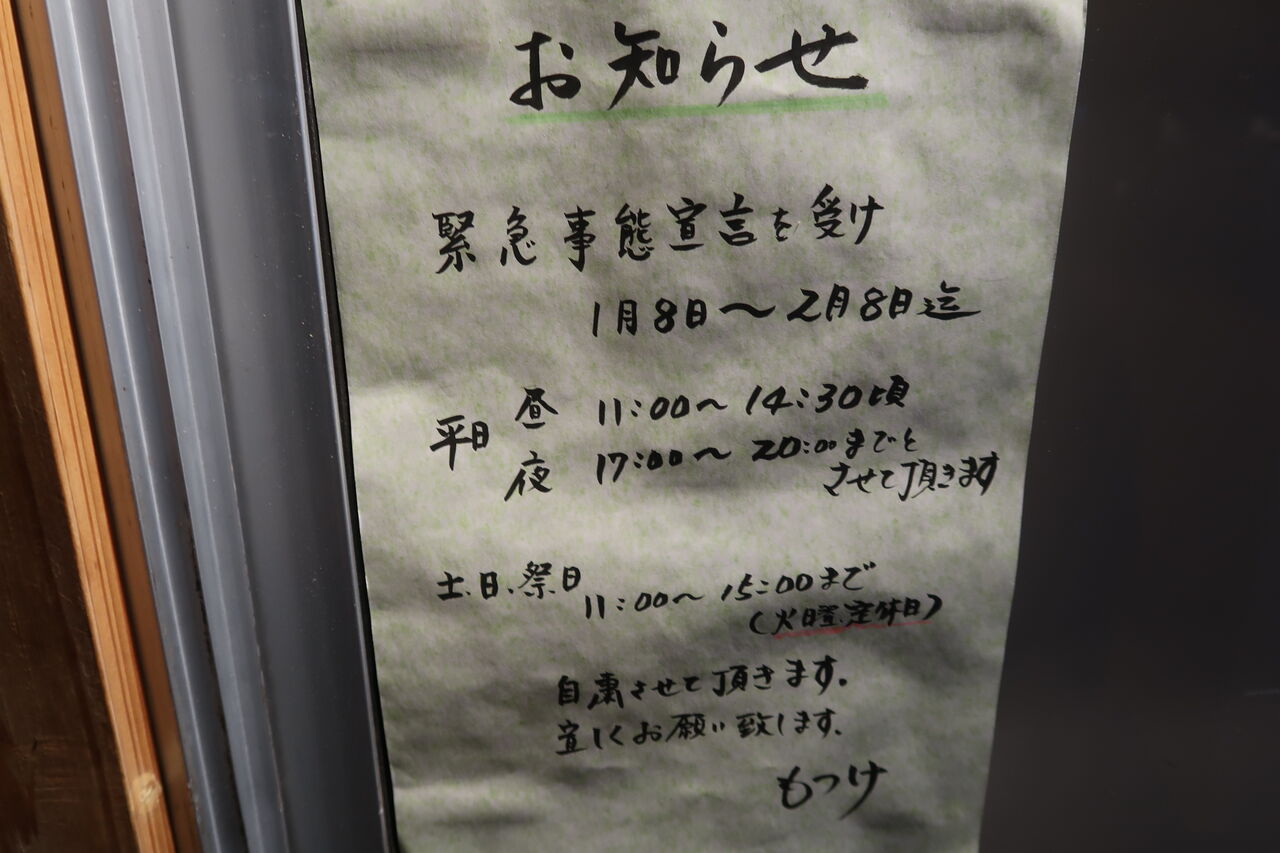 お知らせ
緊急事態宣言を受け
1月8日～2月8日迄
平日 昼 11:00～14:30頃
夜 17:00～20:00までと
させて頂きます
土.日.祭日 11:00～15:00まで
(火曜.定休日)
自粛させて頂きます.
宜しくお願い致します.
もっけ